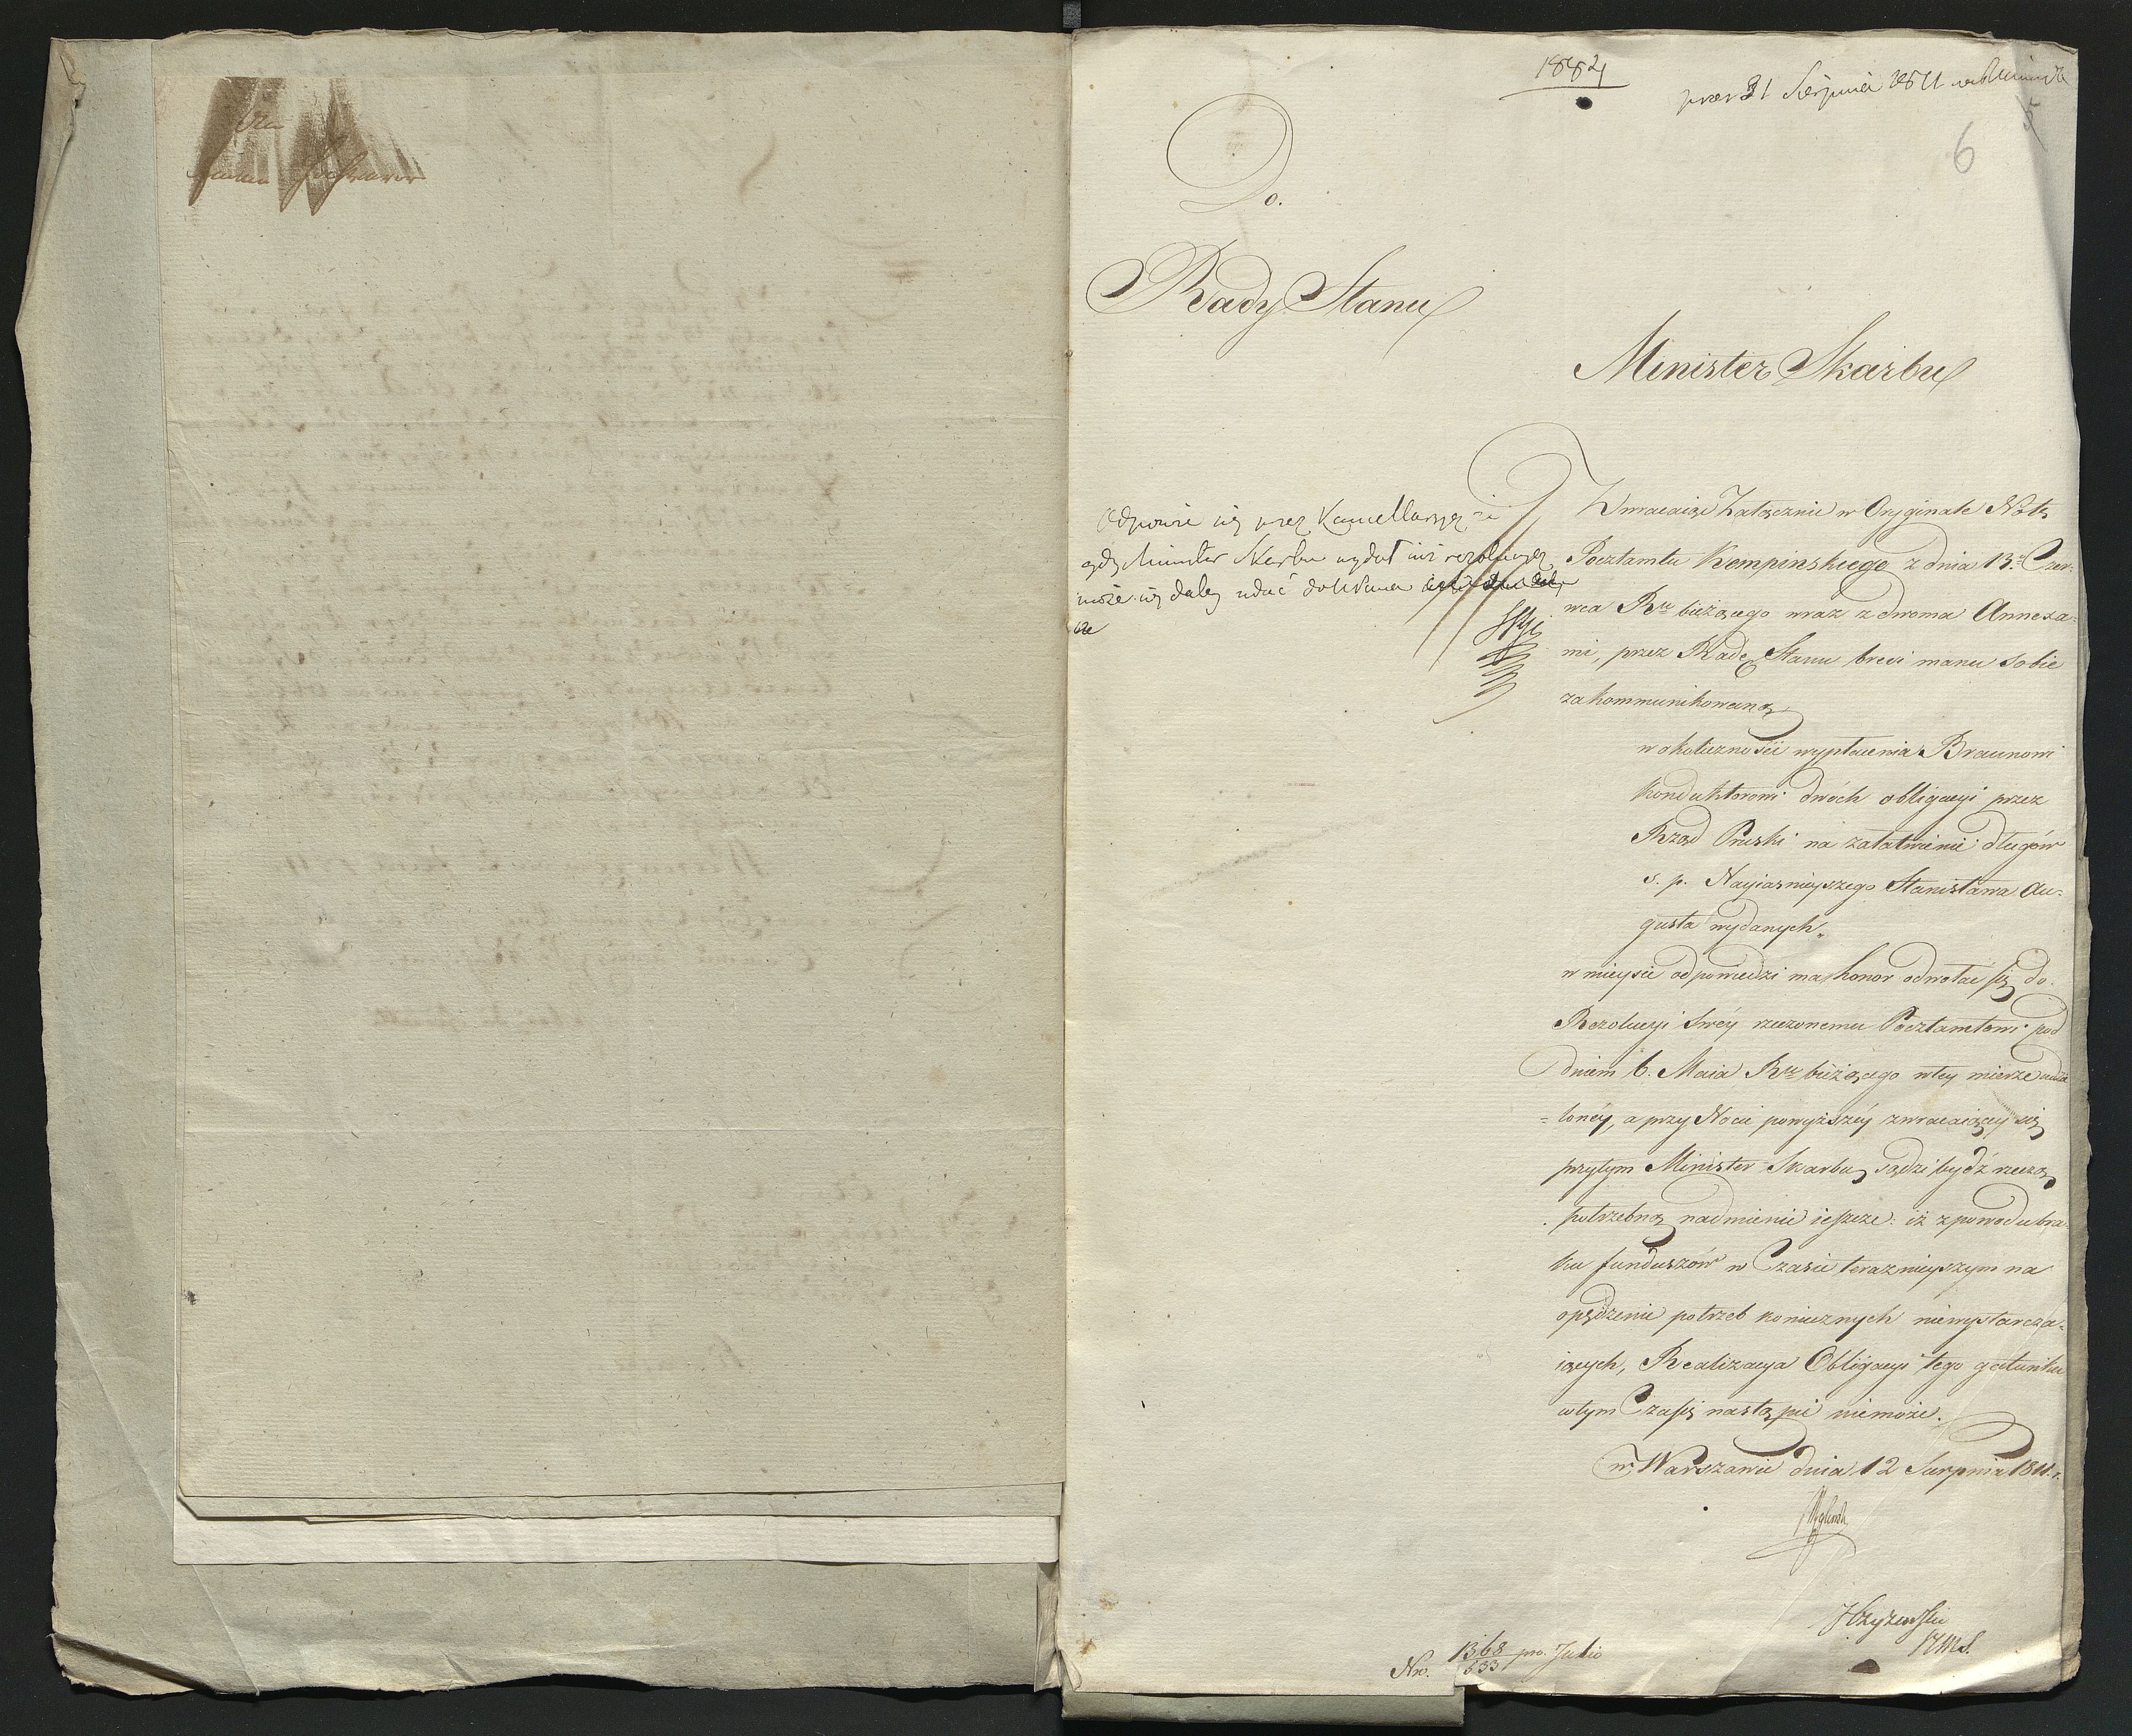 1884
31 Sierpnia 1811
6
5
Do.
Rady Stanu
Minister Skarbu
Odpowie się przez Kancellaryę iż
gdy Minister Skarbu wydał iuż rezolucyę
może się daley udać do
Zwracaiąc Załącznie w Oryginale Notę
Pocztamtu Kempinskiego z dnia 13. Czer-
wca Ru bieżącego wraz z dwoma Annexa-
mi, przez Radę Stanu brevi manu sobie
zakommunikowaną
w okoliczności wypłacenia Braunowi
Konduktorowi dwóch obligacyi przez
Rząd Pruski na załatwienie długów
s. p. Nayiasnieyszego Stanisława Au-
gusta wydanych.
w mieysce odpowiedzi ma honor odwołać się do
Rezolucyi Swéy rzeczonemu Pocztamtowi pod
dniem 6. Maia Ru bieżącego w tey mierze udzie
=lonéy, a przy Nocie powyższéy zwracaiącey się
przytym Minister Skarbu sądzi bydź rzeczą
potrzebną nadmienić ieszcze: iż z powodu bra-
ku funduszów w Czasie teraznieyszym na
opędzenie potrzeb koniecznych niewystarcza=
iących, Realizacya Obligacyi tego gatunku
w tym Czasie nastąpić niemoże.
w Warszawie dnia 12 Sierpnia 1811. r.
Nro. 1368/533 pro Julio